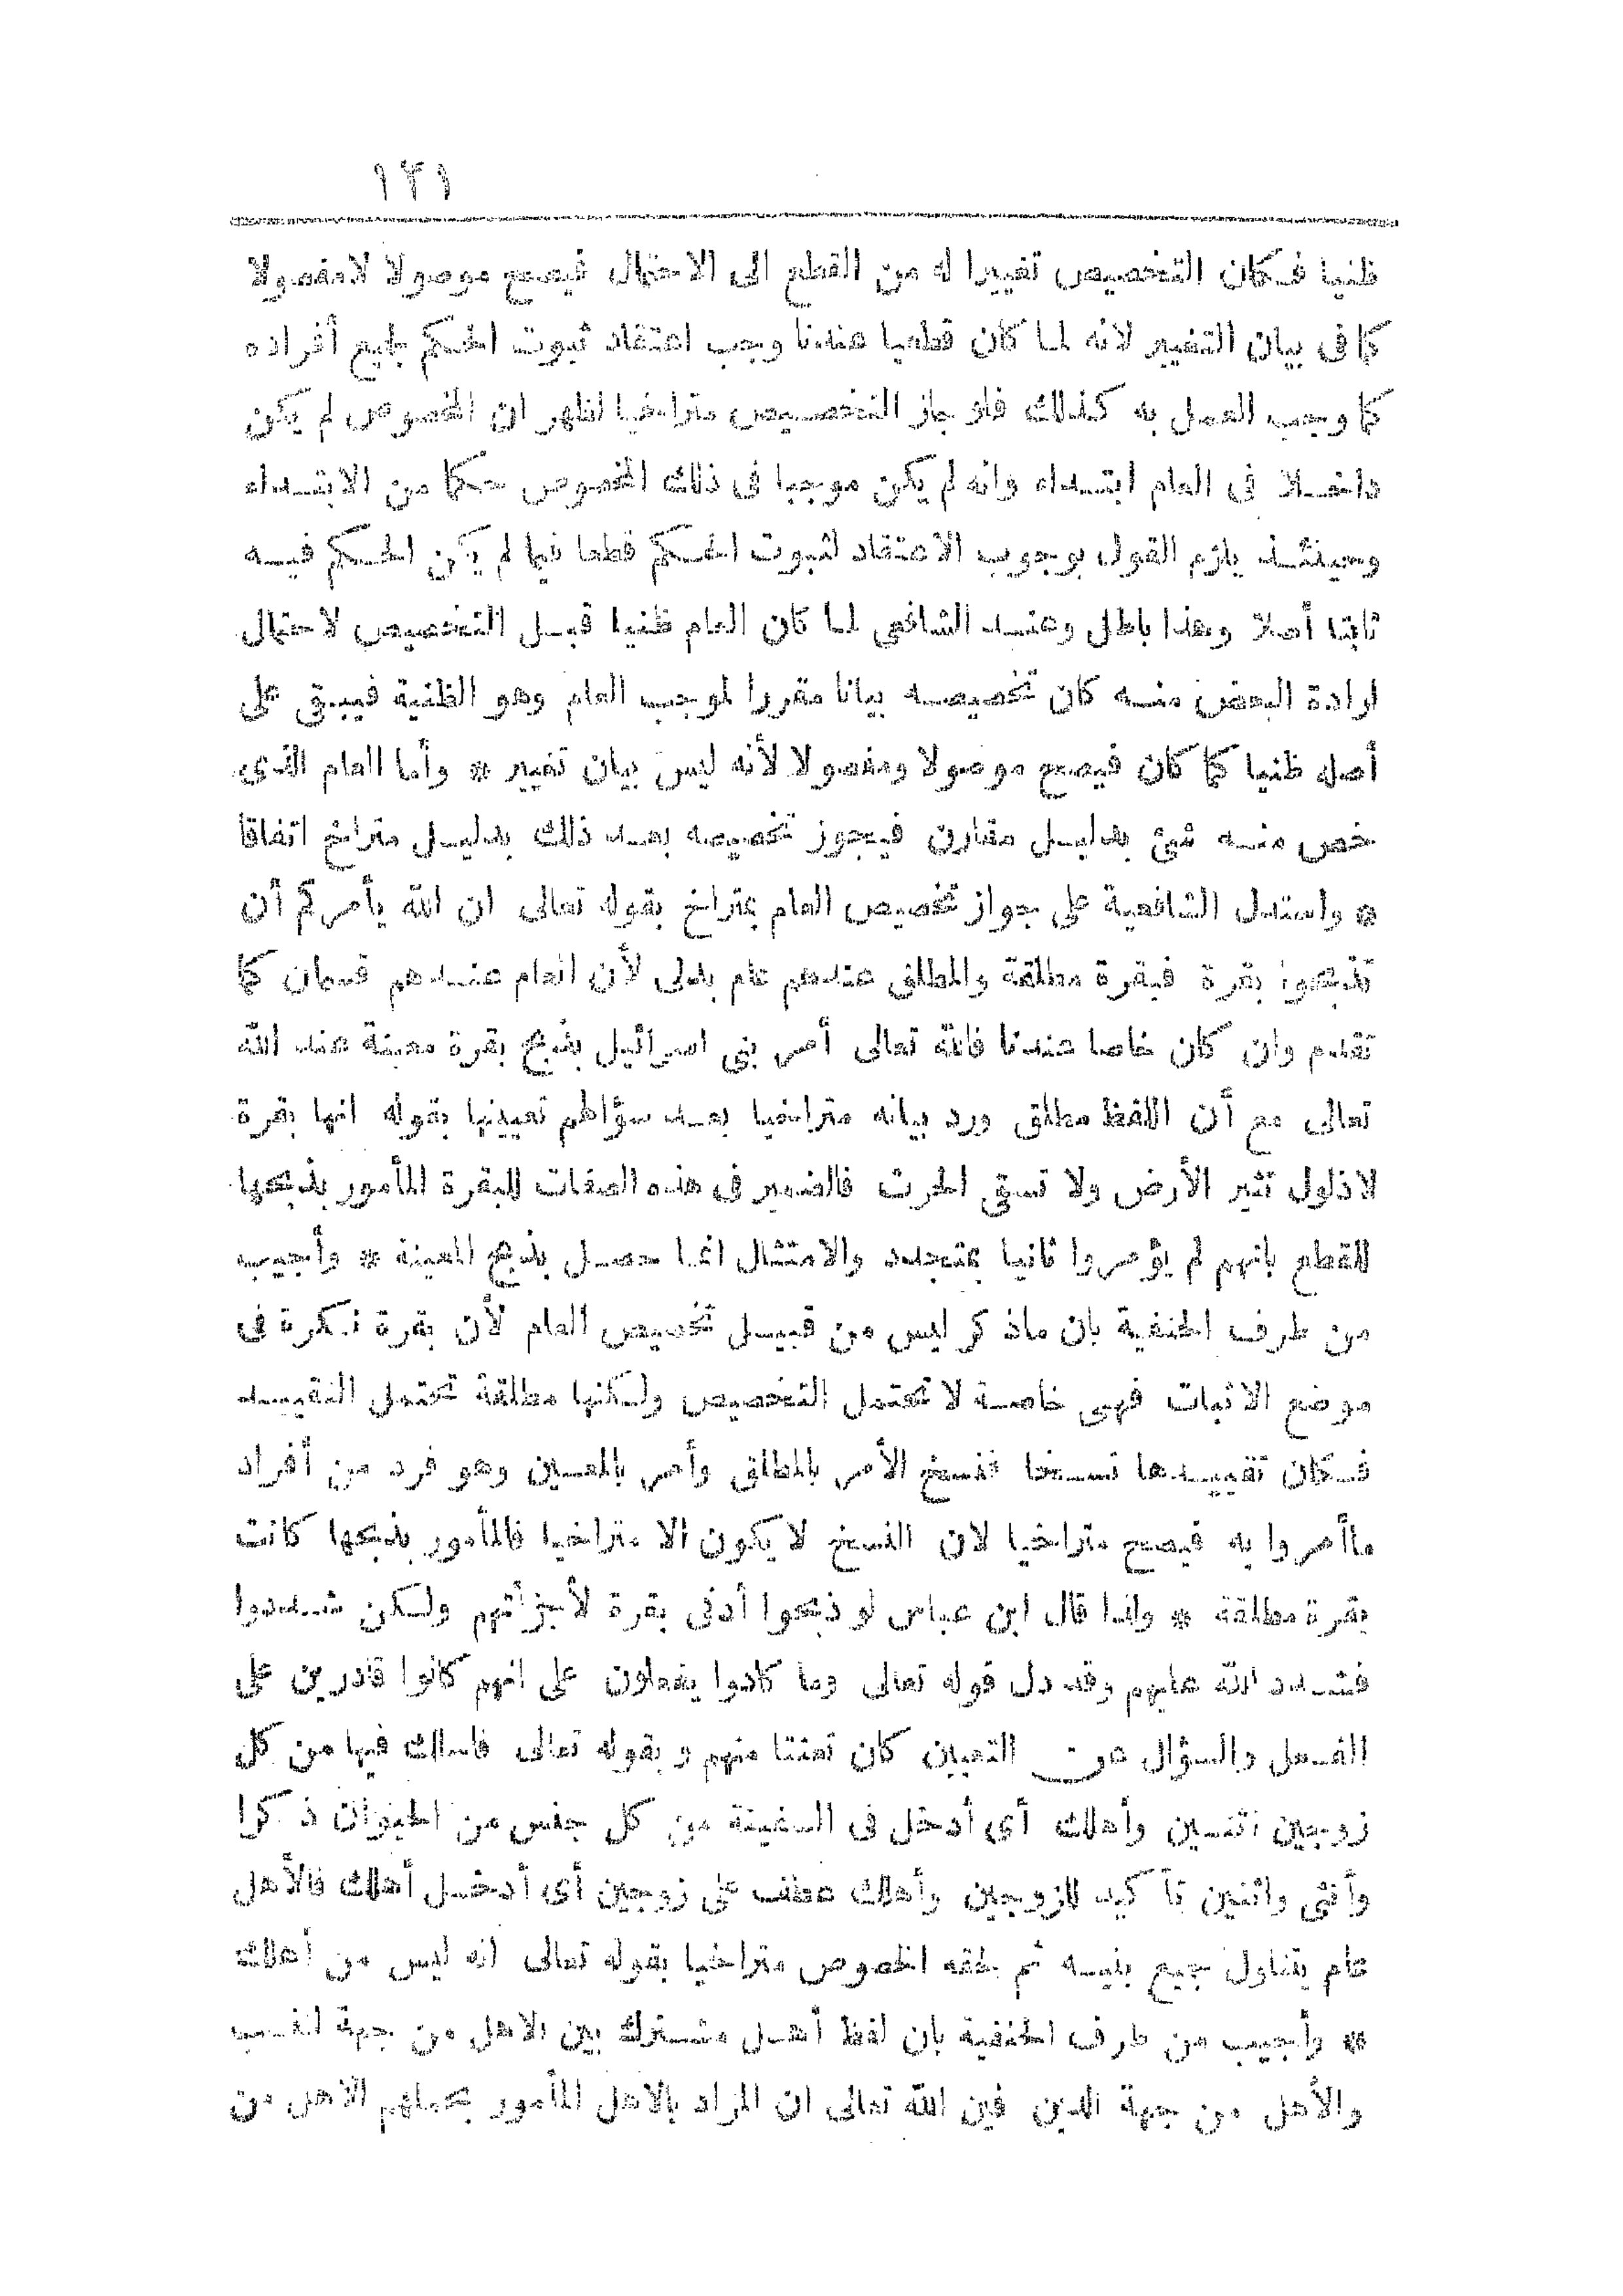 ١٢١
ظنيا فكان التخصيص تغييرا له من القطع الى الاحتمال فيصح موصولا لامفصولا
كما فى بيان التغيير لانه لما كان قطعيا عندنا وجب اعتقاد ثبوت الحكم لجميع أفراده
كما وجب العمل به كذلك فلو جاز التخصيص متراخيا لظهر ان المخصوص لم يكن
داخلا فى العام ابتداء وانه لم يكن موجبا فى ذلك المخصوص حكما من الابتداء
وحينئذ يلزم القول بوجوب الاعتقاد لثبوت الحكم قطعا فيما لم يكن الحكم فيه
ثابتا أصلا وهذا باطل وعند الشافعى لما كان العام ظنيا قبل التخصيص لاحتمال
ارادة البعض منه كان تخصيصه بيانا مقررا لموجب العام وهو الظنية فيبقى على
أصله ظنيا كما كان فيصح موصولا ومفصولا لأنه ليس بيان تغيير * وأما العام الذى
خص منه شئ بدليل مقارن فيجوز تخصيصه بعد ذلك بدليل متراخ اتفاقا
* واستدل الشافعية على جواز تخصيص العام بمتراخ بقوله تعالى ان الله يأمركم أن
تذبحوا بقرة فبقرة مطلقة والمطلق عندهم عام بدلى لأن العام عندهم قسمان كما
تقدم وان كان خاصا عندنا فالله تعالى أمر بنى اسرائيل بذبح بقرة معينة عند الله
تعالى مع أن اللفظ مطلق ورد بيانه متراخيا بعد سؤالهم تعيينها بقوله انها بقرة
لاذلول تثير الأرض ولا تسقى الحرث فالضمير فى هذه الصفات للبقرة المأمور بذبحها
للقطع بانهم لم يؤمروا ثانيا بمتجدد والامتثال انما حصل بذبح المعينة * وأجيب
من طرف الحنفية بان ماذكر ليس من قبيل تخصيص العام لأن بقرة نكرة فى
موضع الاثبات فهى خاصة لا تحتمل التخصيص ولكنها مطلقة تحتمل التقييد
فكان تقييدها نسخا فنسخ الأمر بالمطلق وأمر بالمعين وهو فرد من أفراد
ماأمروا به فيصح متراخيا لان النسخ لا يكون الا متراخيا فالمأمور بذبحها كانت
بقرة مطلقة * ولذا قال ابن عباس لو ذبحوا أدنى بقرة لأجزأتهم ولكن شددوا
فشدد الله عليهم وقد دل قوله تعالى وما كادوا يفعلون على انهم كانوا قادرين على
الفعل والسؤال عن التعيين كان تعنتا منهم وبقوله تعالى فاسلك فيها من كل
زوجين اثنين وأهلك أى أدخل فى السفينة من كل جنس من الحيوان ذكرا
وأنثى واثنين تأكيد للزوجين وأهلك عطف على زوجين أى أدخل أهلك فالأهل
عام يتناول جميع بنيه ثم لحقه الخصوص متراخيا بقوله تعالى انه ليس من أهلك
* وأجيب من طرف الحنفية بان لفظ أهل مشترك بين الاهل من جهة النسب
والأهل من جهة الدين فبين الله تعالى ان المراد بالاهل المأمور بحملهم الاهل من